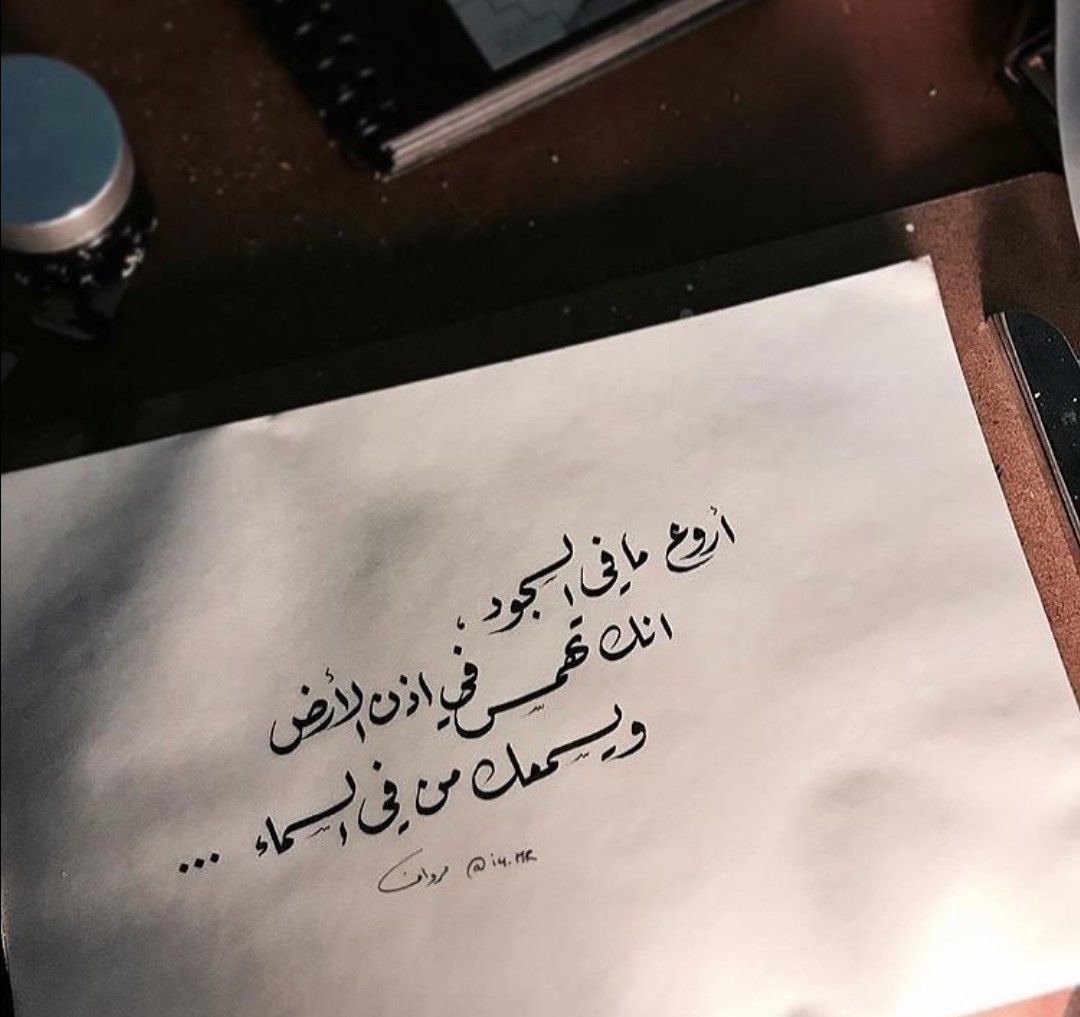 أروع ما في السجود ،
انك تهمس في اذن الأرض
ويسمعك من في السماء ...
مروان @i4.MR